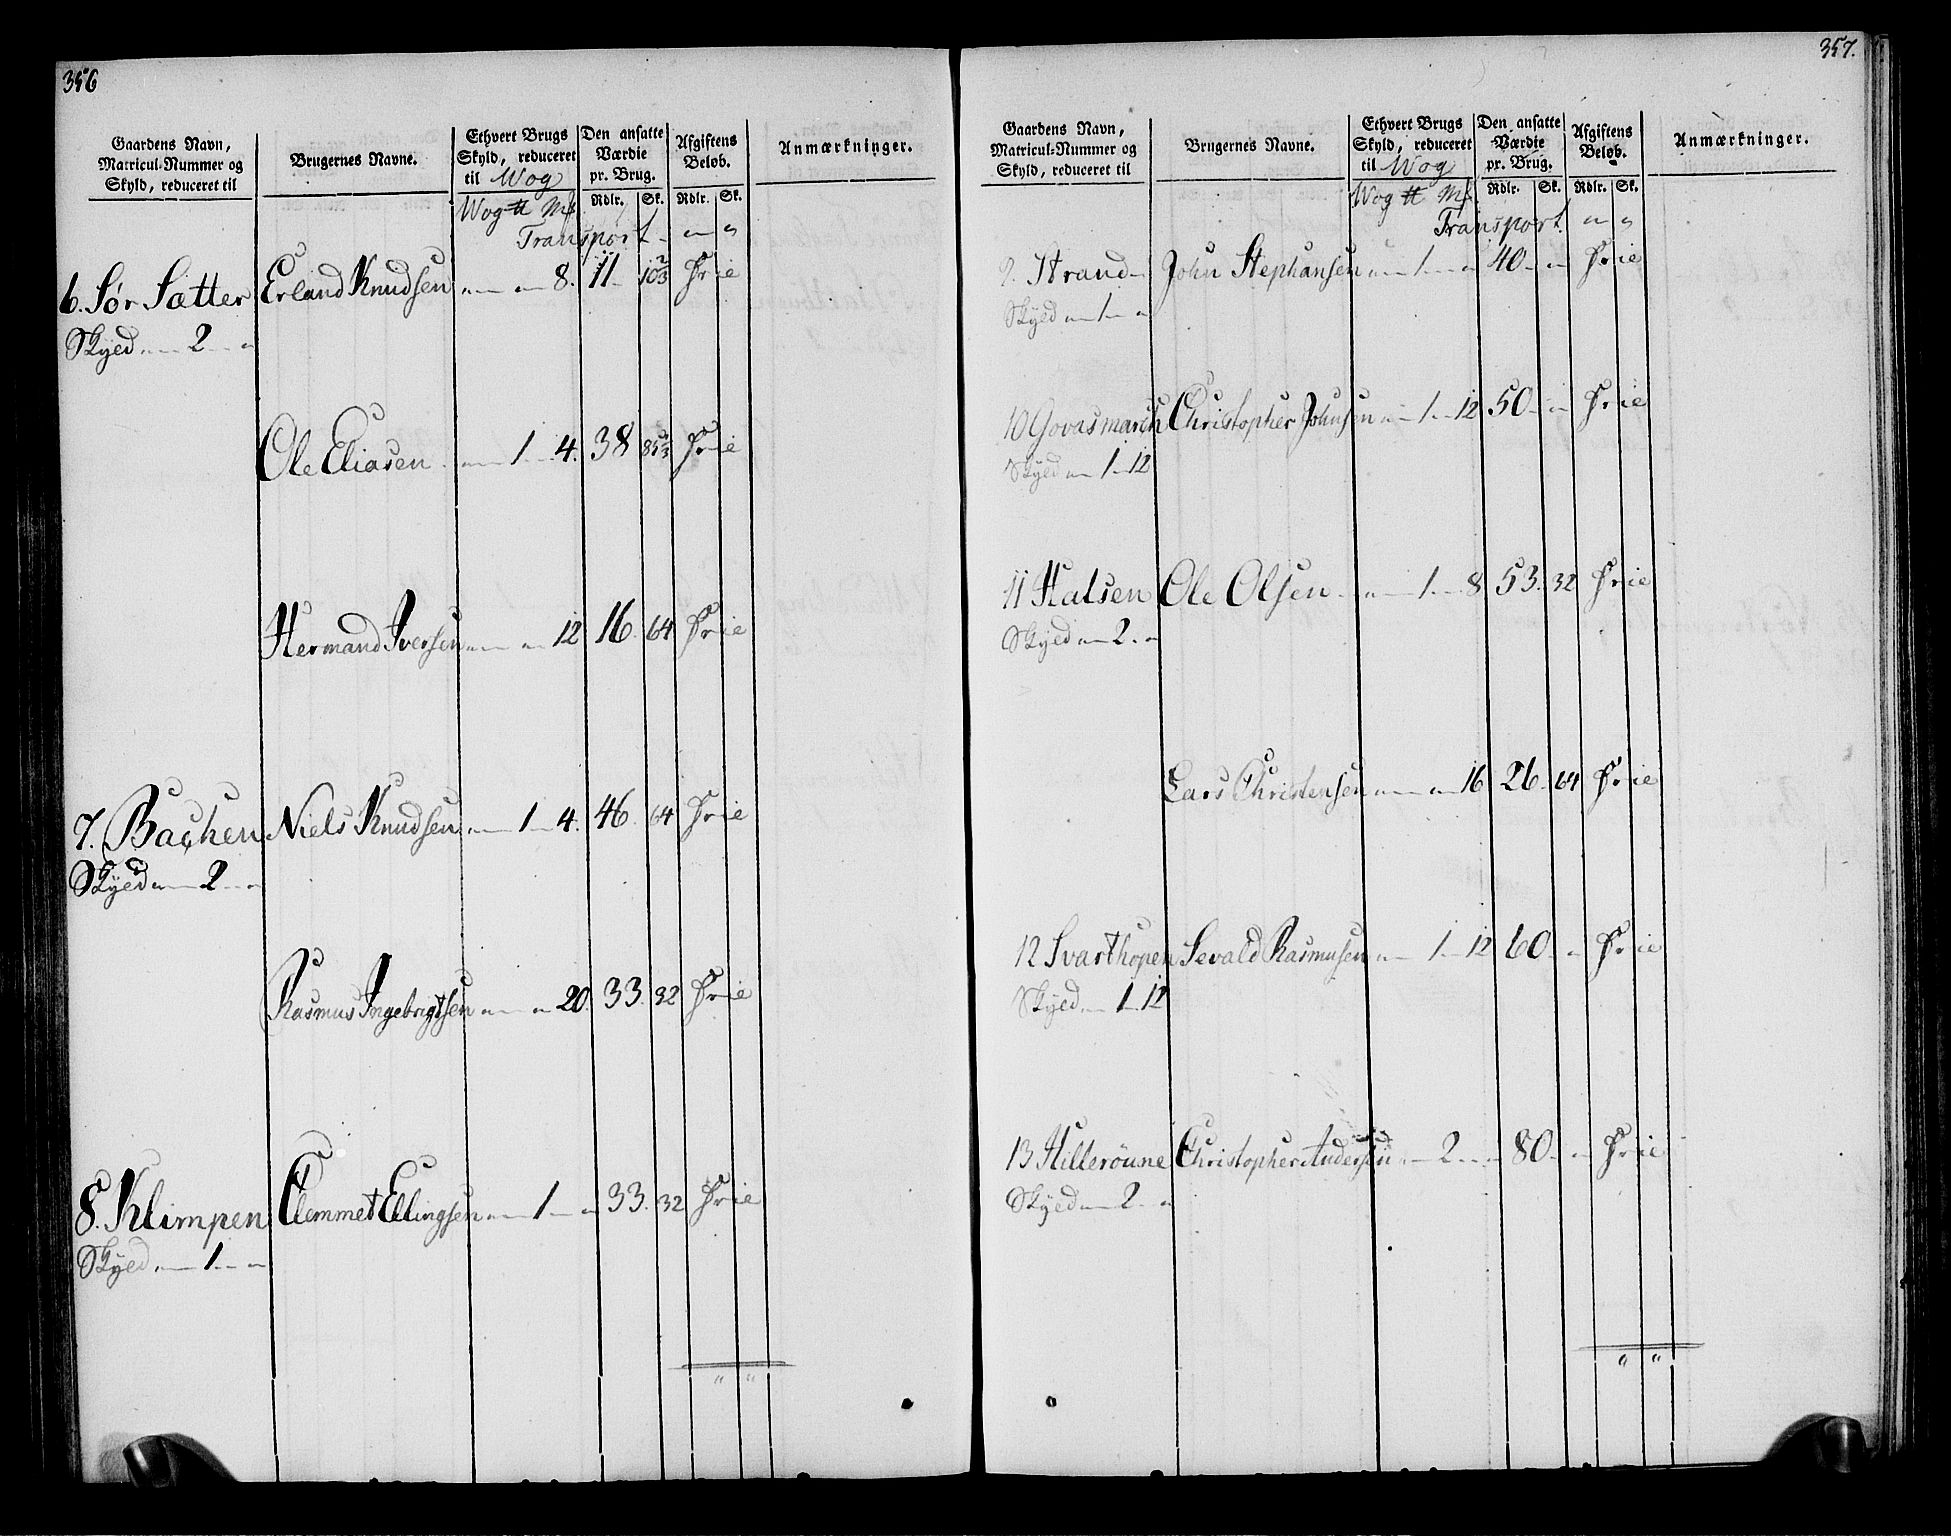 356
Gaardens Navn, Matricul-Nummer og Skyld, reduceret til | Brugernes Navne. | Ethvert Brugs Skyld, reduceret til Wog | Den ansatte Værdie pr. Brug. | Afgiftens Beløb. | Anmærkninger.
Wog ℔ Mk | Rdlr. Sk. | Rdlr. Sk.
Transport - " "
6. Sør Sætter Erland Knudsen " - " 8. 11 - 10 2/3 Frie
Skyld " - 2 - "
Ole Eliasen " - 1 - 4. 38 85 1/3 Frie
Hermand Iversen " - " 12 16. 64 Frie
7. Bachen Niels Knudsen " - 1 - 4. 46. 64 Frie
Skyld " - 2 - "
Rasmus Ingebrigtsen " - " 20. 33. 32 Frie
8. Klimpen Clemmet Ellingsen " - 1 - " 33. 32 Frie
Skyld " - 1 - "
" "
357.
Gaardens Navn, Matricul-Nummer og Skyld, reduceret til | Brugernes Navne. | Ethvert Brugs Skyld, reduceret til Wog | Den ansatte Værdie pr. Brug. | Afgiftens Beløb. | Anmærkninger.
Wog ℔ Mk | Rdlr. Sk. | Rdlr. Sk.
Transport " "
9. Strand John Stephansen " - 1 - " 40 - " Frie
Skyld " - 1 - "
10 Christopher Johnsen " - 1 - 12 50 - " Frie
Skyld " - 1 - 12
11 Halsen Ole Olsen " - 1 - 8 53. 32 Frie
Skyld " - 2 - "
Lars Christensen " - " 16 26. 64 Frie
12 Svarthopen Sevald Rasmusen " - 1 - 12 60 - " Frie
Skyld " 1 - 12
13 Hillerøune Christopher Andersen " - 2 - " 80 - " Frie
Skyld " - 2 - "
" "